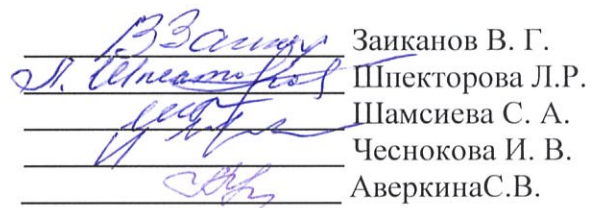 Заиканов В. Г.
Шпекторова Л.Р.
Шамсиева С. А.
Чеснокова И. В.
АверкинаС.В.